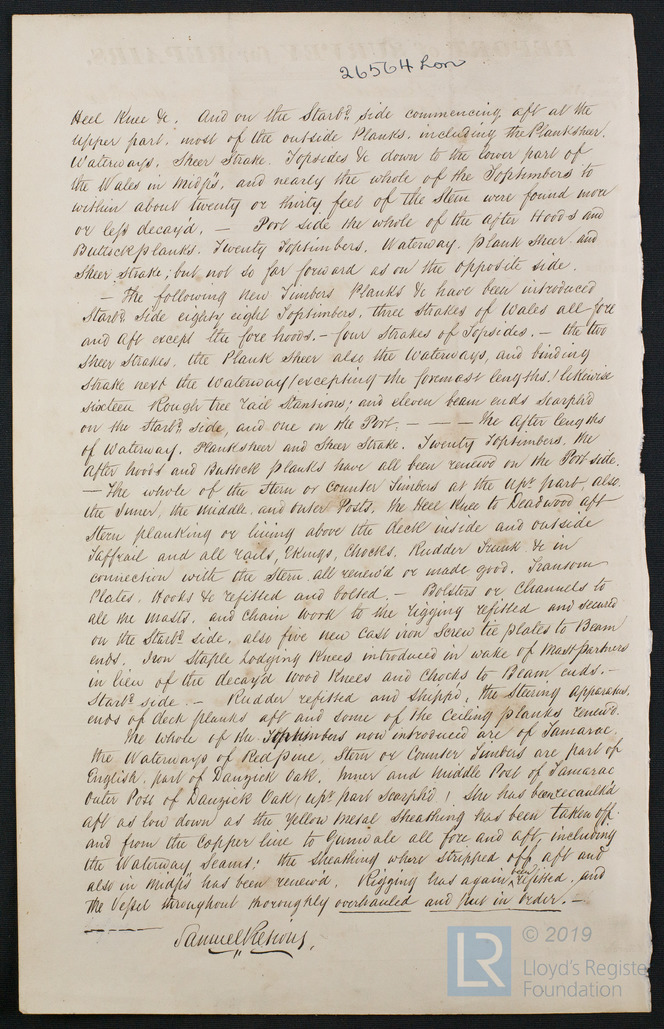 26564 Lon
Heel Knee &c. And on the Starbd. side commencing aft at the
upper part, most of the outside Planks, including the Planksheer,
Waterways, Sheer Strake, Topsides &c down to the lower part of
the Wales in Midps, and nearly the whole of the Toptimbers to
within about twenty or thirty feet of the Stem were found more
or less decay'd, — Port side the whole of the after Hoods and
Buttock planks. Twenty Toptimbers. Waterway. plank Sheer and
Sheer Strake; but not so far forward as on the opposite side.
— The following new Timbers Planks &c have been introduced
Starbd. Side eighty eight Toptimbers, three strakes of Wales all fore
and aft except the fore hoods. – four Strakes of Topsides. – the two
Sheer Strakes, the Plank Sheer also the Waterways, and binding
Strake next the Waterway (excepting the foremost lengths,) likewise
sixteen Rough tree rail Stantions; and eleven beam ends scarph'd
on the Starbd. side, and one on the Port. — — — The After lengths
of Waterway, Planksheer and Sheer Strake. Twenty Toptimbers, the
After hoods and Buttock Planks have all been renewd on the Port side.
— The whole of the Stern or Counter Timbers at the upr. part, also
the Inner, the middle, and outer Posts, the Heel Knee to Deadwood aft
Stern planking or lining above the deck inside and outside
Taffrail and all rails, Ekings, Chocks, Rudder Trunk &c in
connection with the Stern all renew'd or made good. Transom
Plates. Hooks &c refitted and bolted. – Bolsters or Channels to
all the masts, and chain work to the rigging refitted and secured
on the Starbd. side, also five new cast iron Screw tie plates to Beam
ends, Iron Staple Lodging Knees introduced in wake of Mast partners
in lieu of the decay'd wood Knees and Chocks to Beam ends. –
Starbd. side. – Rudder refitted and shippd, the steering apparatus,
ends of deck planks aft and some of the Ceiling planks renew'd.
The whole of the Toptimbers now introduced are of Tamarac,
the Waterways of Red pine, Stern or Counter Timbers are part of
English, part of Danzick Oak, Inner and Middle Post of Tamarac
Outer Post of Danzick Oak, (upr. part Scarph'd) She has been recaulkd
aft as low down as the Yellow Metal Sheathing has been taken off
and from the Copper line to Gunwale all fore and aft, including
the Waterway Seams: the Sheathing where stripped off, aft and
also in Midps has been renew'd. Rigging has again been refitted, and
the Vessel throughout thoroughly overhauled and put in order. –
Samuel
© 2019
LR
Lloyd's Registe
Foundation